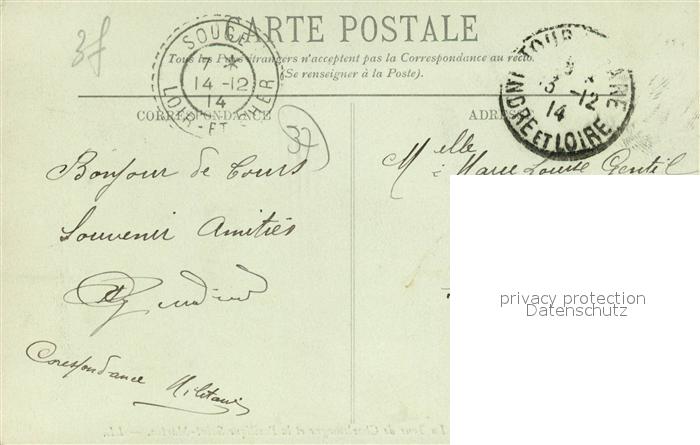 3f
CARTE POSTALE
Tous les Pays étrangers n'acceptent pas la Correspondance au recto.
(Se renseigner à la Poste).
SOUGÉ
7 *
14 -12
14
LOIR-ET-CHER
TOUR
3 -12
14
INDRE ET LOIRE
CORRESPONDANCE
37
Bonjour de Tours
Souvenir Amitiés
Corespondance Militaire
ADRE
Melle
Marie Louise Gentil
privacy protection
Datenschutz